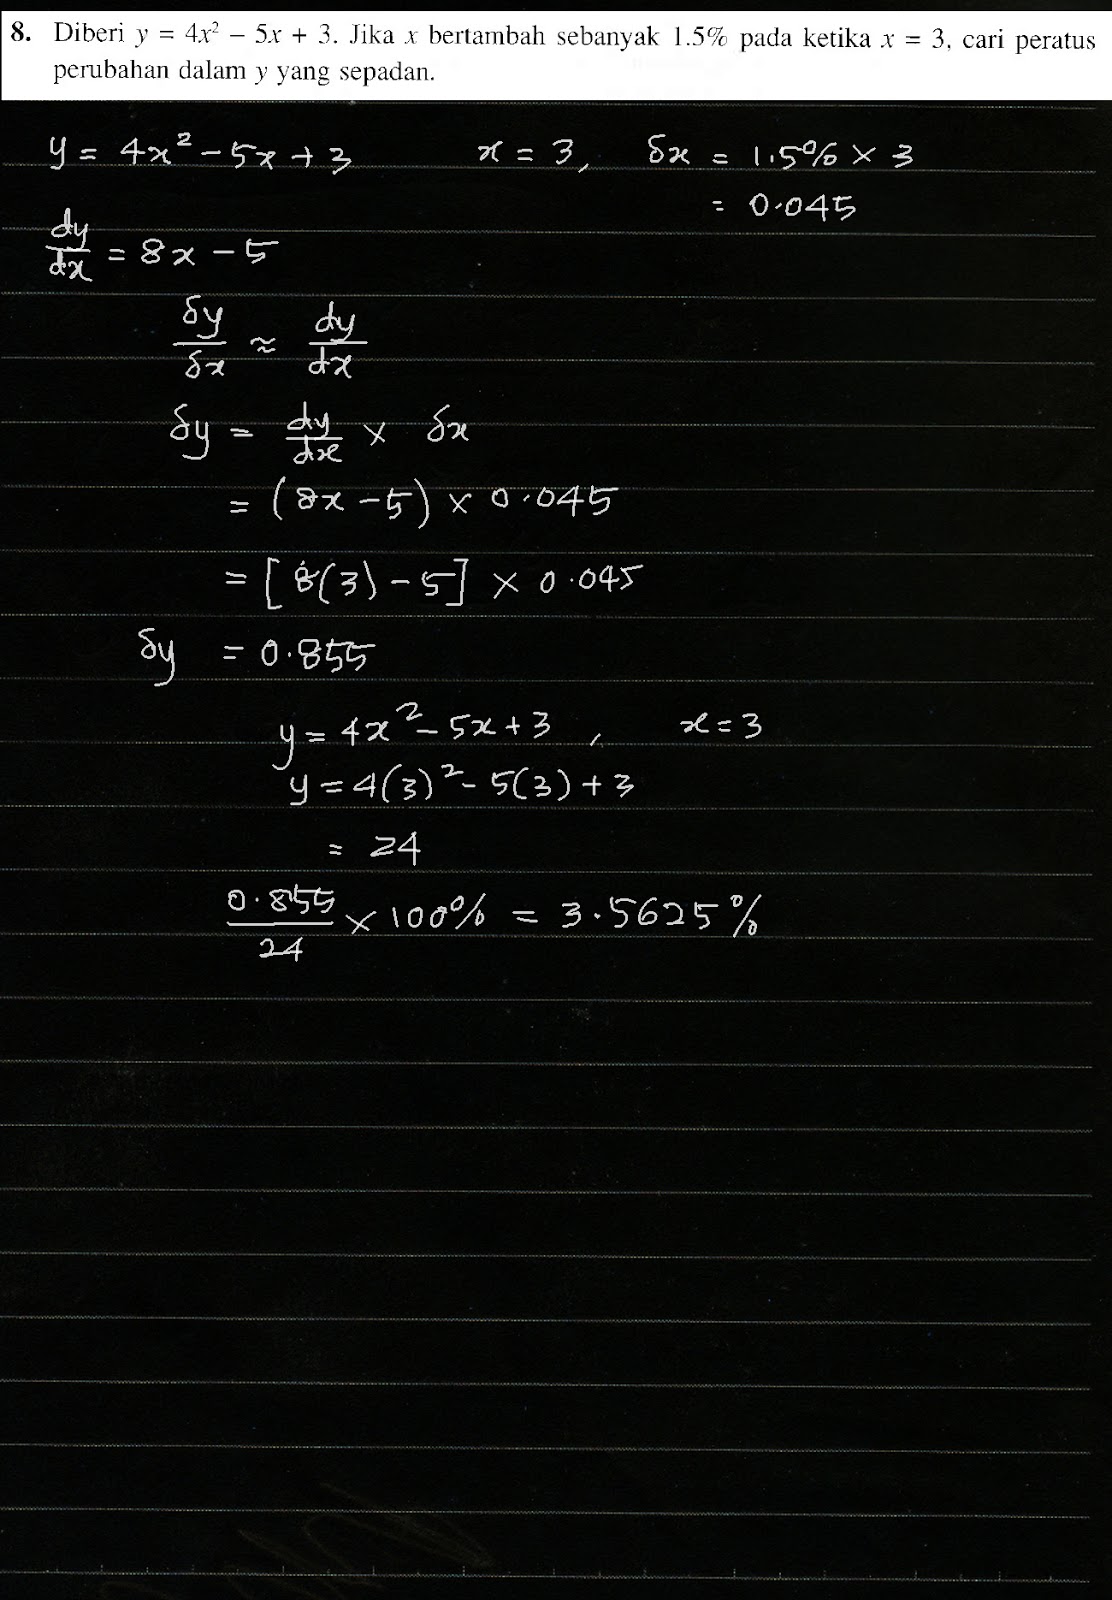 8. Diberi y = 4x² – 5x + 3. Jika x bertambah sebanyak 1.5% pada ketika x = 3, cari peratus
perubahan dalam y yang sepadan.
y = 4x² – 5x + 3 x = 3, δx = 1.5% × 3
= 0.045
dy/dx = 8x – 5
δy/δx ≈ dy/dx
δy = dy/dx × δx
= (8x – 5) × 0.045
= [8(3) – 5] × 0.045
δy = 0.855
y = 4x² – 5x + 3, x = 3
y = 4(3)² – 5(3) + 3
= 24
0.855/24 × 100% = 3.5625%